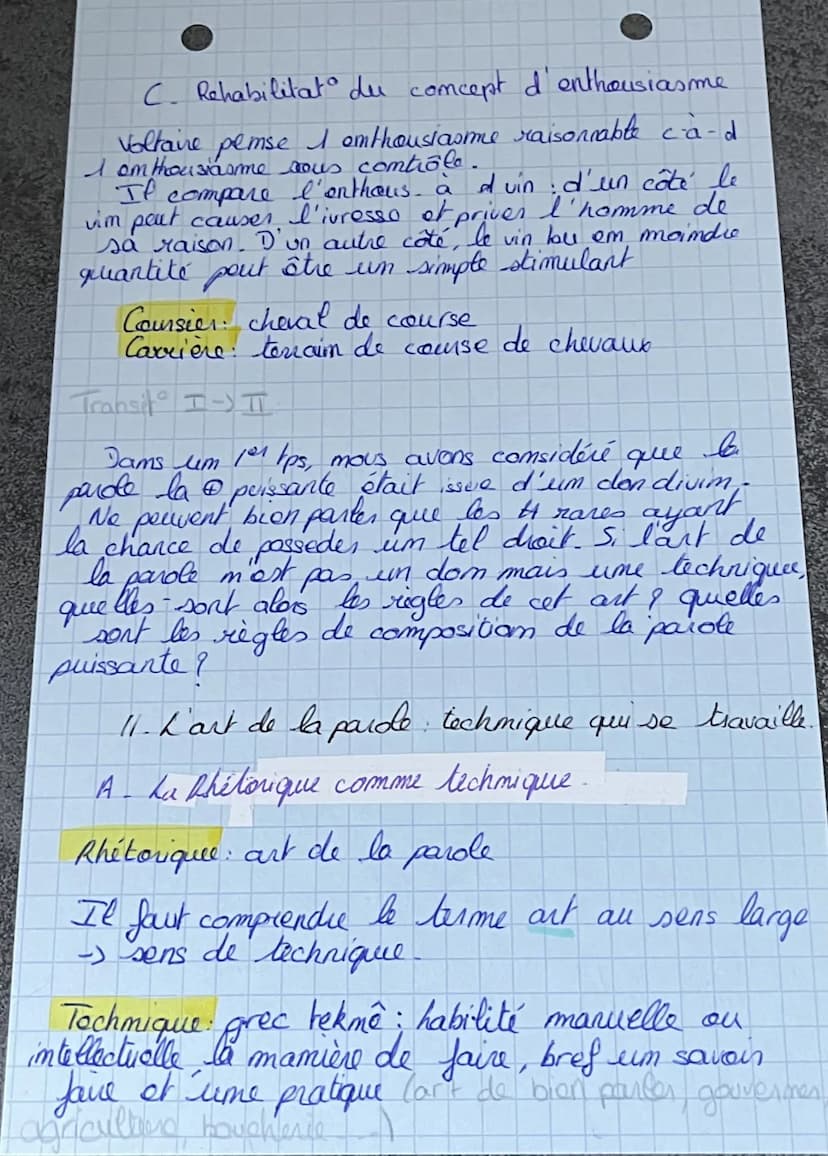 C. Rehabilitat° du concept d'enthousiasme
Voltaire pense 1 enthousiasme raisonnable c-à-d
1 enthousiasme sous contrôle.
Il compare l'enthous. à d vin : d'un côté le
vin peut causer l'ivresse et priver l'homme de
sa raison. D'un autre côté, le vin bu en moindre
quantité peut être un simple stimulant
Coursier : cheval de course
Carrière : terrain de course de chevaux
Transit° I -> II
Dans un 1er tps, nous avons considéré que la
parole la ⊕ puissante était issue d'un don divin.
Ne peuvent bien parler que les H rares ayant
la chance de posseder un tel droit. Si l'art de
la parole n'est pas un don mais une technique,
quelles-sont alors les règles de cet art ? quelles
sont les règles de composition de la parole
puissante ?
II. L'art de la parole : technique qui se travaille.
A - La Rhétorique comme technique.
Rhétorique : art de la parole
Il faut comprendre le terme art au sens large
-> sens de technique.
Technique : grec tekmê : habilité manuelle ou
intellectuelle, la manière de faire, bref un savoir
faire et une pratique (art de bien parler, gouverner,
agriculture, boucherie ...)